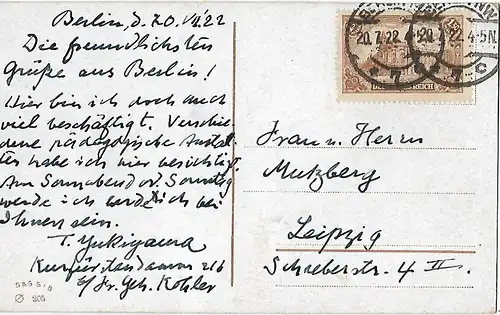 Berlin, d. 20. VII. 22
Die freundlichsten
Grüße aus Berlin!
Hier bin ich doch auch
viel beschäftigt. Verschie-
dene pädagogische Anstal-
ten habe ich hier besichtigt.
Am Sonnabend od. Sonntag
werde ich wieder bei
Ihnen sein.
T. Yukiyama
Kurfürstendamm 216
b/ Fr. Geh. Köhler
SAGS
208
20.7.22 4-5N.
20.7.22 4-5N.
* 7
* 7 c
DEUTSCHES REICH
Frau u. Herrn
Mutzberg
Leipzig
Schreberstr. 4 II.